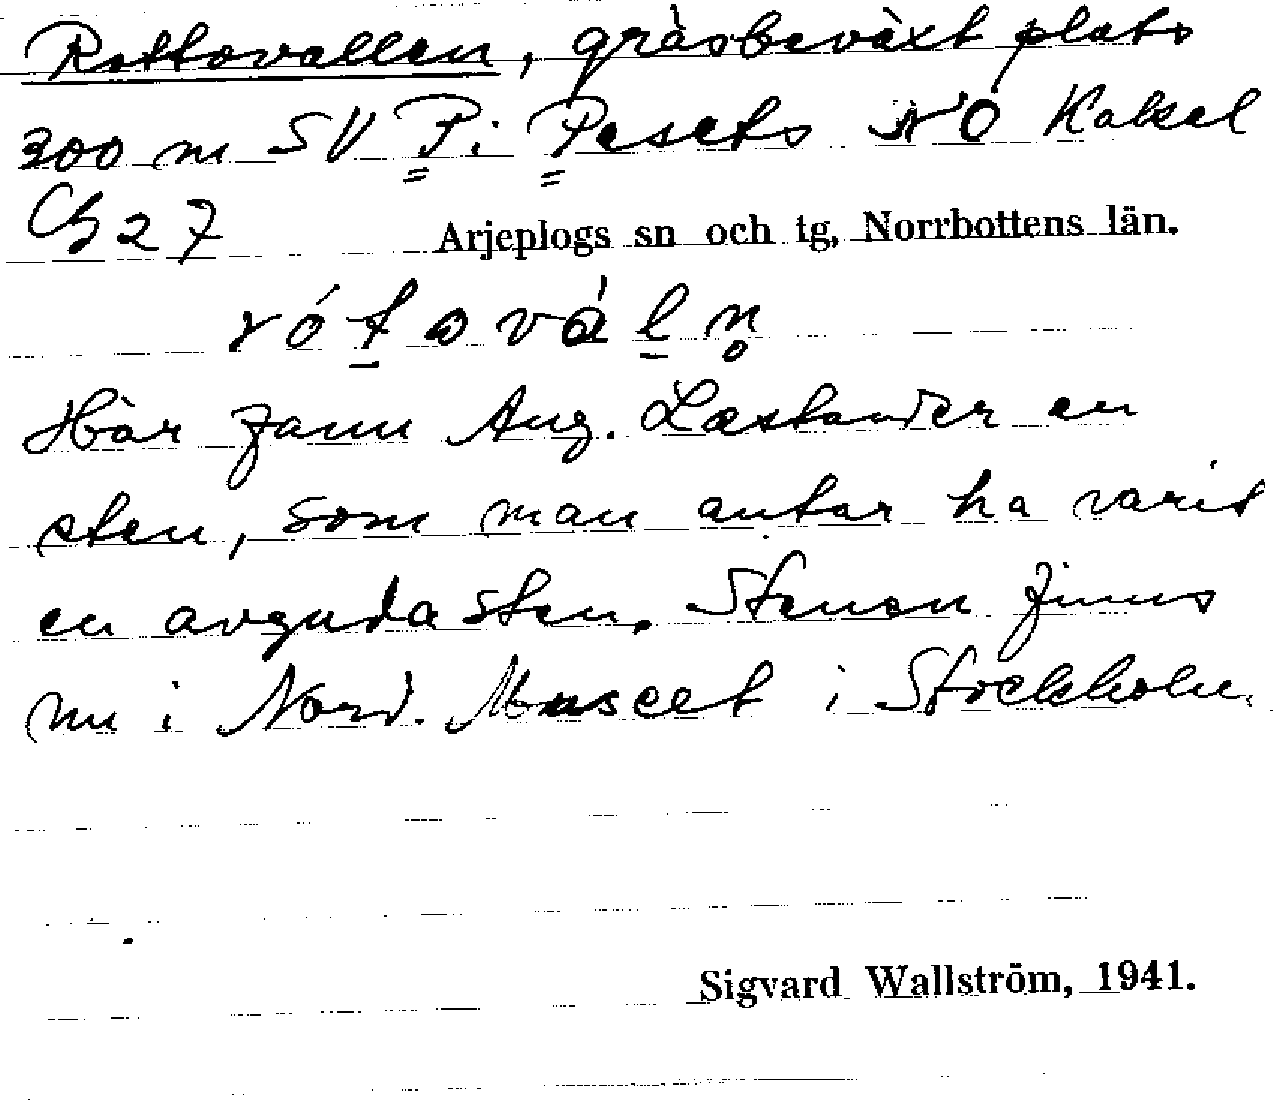 Rottovallen, gräsbeväxt plats
300 m SV P. i Pesets NÖ Kaksel
Cb 27 Arjeplogs sn och tg, Norrbottens län.
Här fann Aug. Læstander en
sten, som man antar ha varit
en avgudasten. Stenen finns
nu i Nord. Museet i Stockholm.
Sigvard Wallström, 1941.